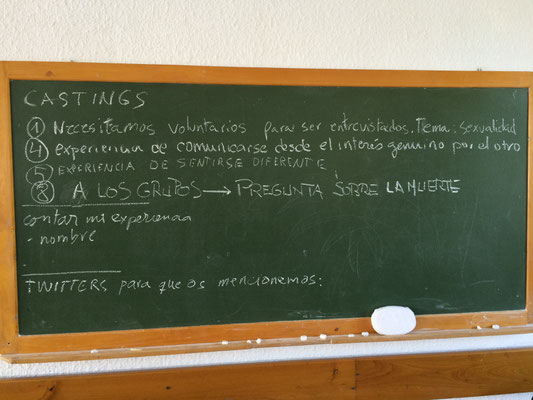 CASTINGS
① Necesitamos voluntarios para ser entrevistados. Tema: sexualidad
④ experiencia de comunicarse desde el interés genuino por el otro
⑤ EXPERIENCIA DE SENTIRSE DIFERENTE
⑧ A LOS GRUPOS → PREGUNTA SOBRE LA MUERTE
contar mi experiencia
- nombre
TWITTERS para que os mencionemos: